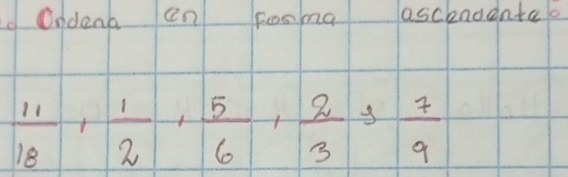 Ordena en Forma ascendente:
11/18, 1/2, 5/6, 2/3 y 7/9